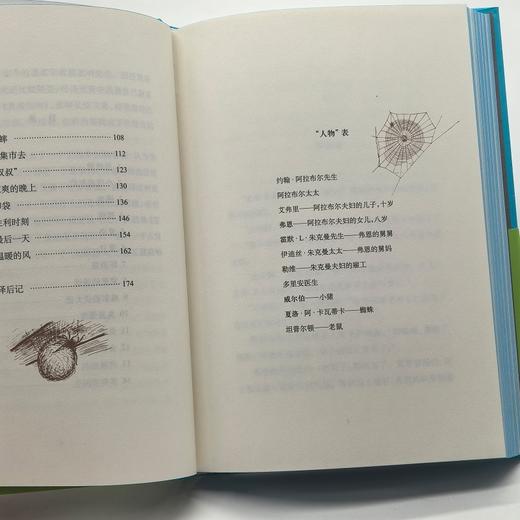 蟀 108
集市去 112
叔叔” 123
爽的晚上 130
袋 136
利时刻 146
最后一天 154
温暖的风 162
译后记 174
“人物”表
约翰·阿拉布尔先生
阿拉布尔太太
艾弗里——阿拉布尔夫妇的儿子，十岁
弗恩——阿拉布尔夫妇的女儿，八岁
霍默·L·朱克曼先生——弗恩的舅舅
伊迪丝·朱克曼太太——弗恩的舅妈
勒维——朱克曼夫妇的雇工
多里安医生
威尔伯——小猪
夏洛·阿·卡瓦蒂卡——蜘蛛
坦普尔顿——老鼠